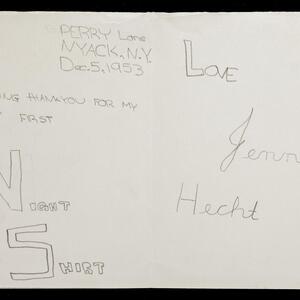 PERRY Lane
NYACK, N.Y.
Dec. 5, 1953
THANKYOU FOR MY
FIRST
NIGHT
SHIRT
LOVE
Jenn
Hecht